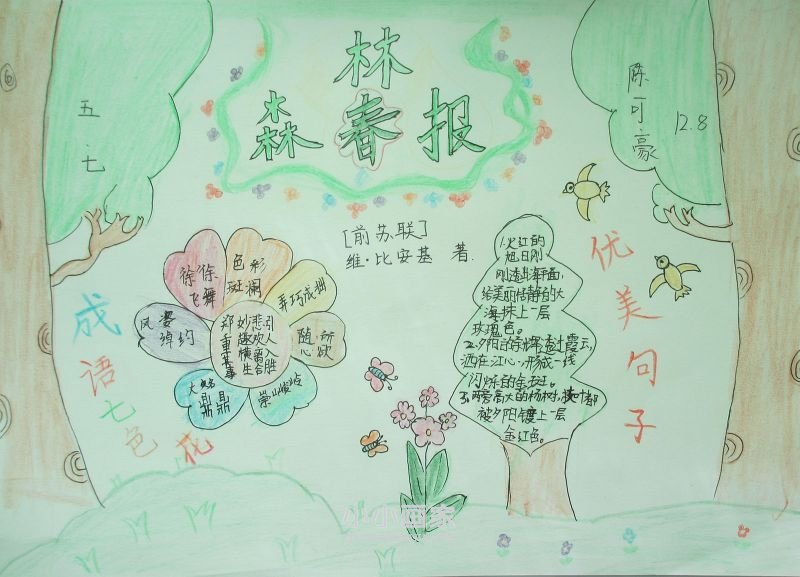 林
森 春 报
五·七
陈可豪
12.8
[前苏联]
维·比安基 著.
成语七色花
徐徐
飞舞
色彩
斑斓
弄巧成拙
随心所欲
崇山峻岭
大名
鼎鼎
风姿
绰约
郑重其事
妙趣横生
悲欢离合
引人入胜
优美句子
1.火红的
旭日刚
刚透出海平面,
给美丽恬静的大
海抹上一层
玫瑰色。
2.夕阳的余辉透过霞云,
洒在江心,形成一线
闪烁的金
3.两旁高大的杨树,
被夕阳镀上一层
金红色。
小小画家